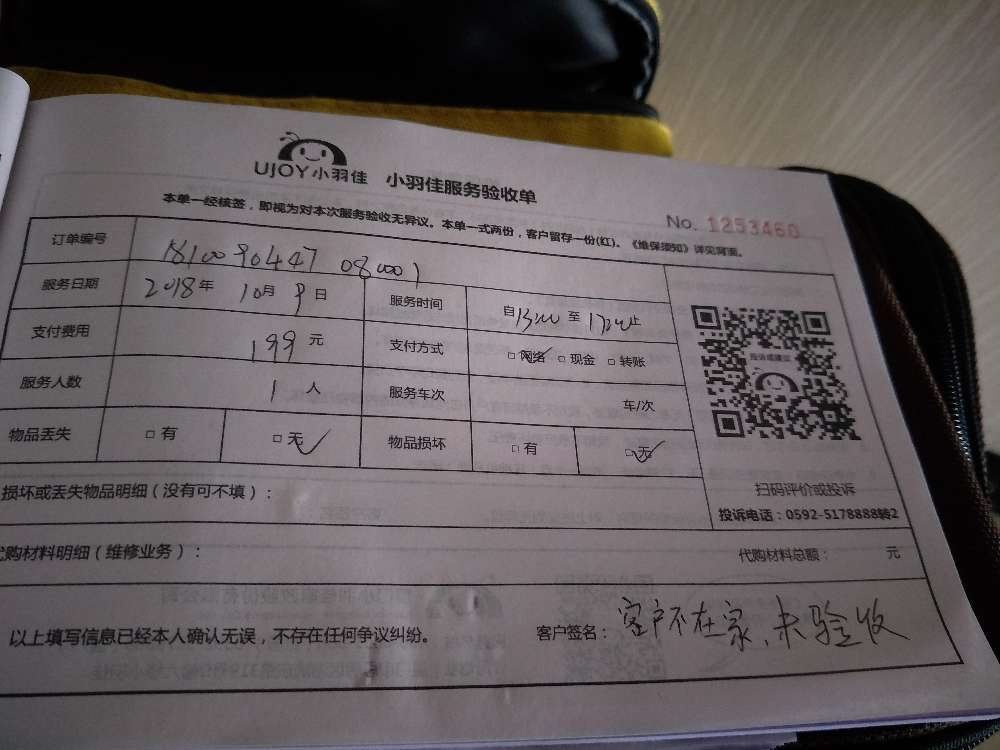 UJOY小羽佳 小羽佳服务验收单
No. 1253460
本单一经核签，即视为对本次服务验收无异议。本单一式两份，客户留存一份(红)。《维保须知》详见背面。
订单编号 1810090447 080001
服务日期 2018年 10月 9日 服务时间 自13:00至17:00止
支付费用 199元 支付方式 □网络 □现金 □转账
服务人数 1人 服务车次 车/次
物品丢失 □有 □无 物品损坏 □有 □无
投诉或建议
扫码评价或投诉
投诉电话：0592-5178888转2
损坏或丢失物品明细（没有可不填）：
代购材料明细（维修业务）： 代购材料总额： 元
以上填写信息已经本人确认无误，不存在任何争议纠纷。 客户签名：客户不在家，未验收